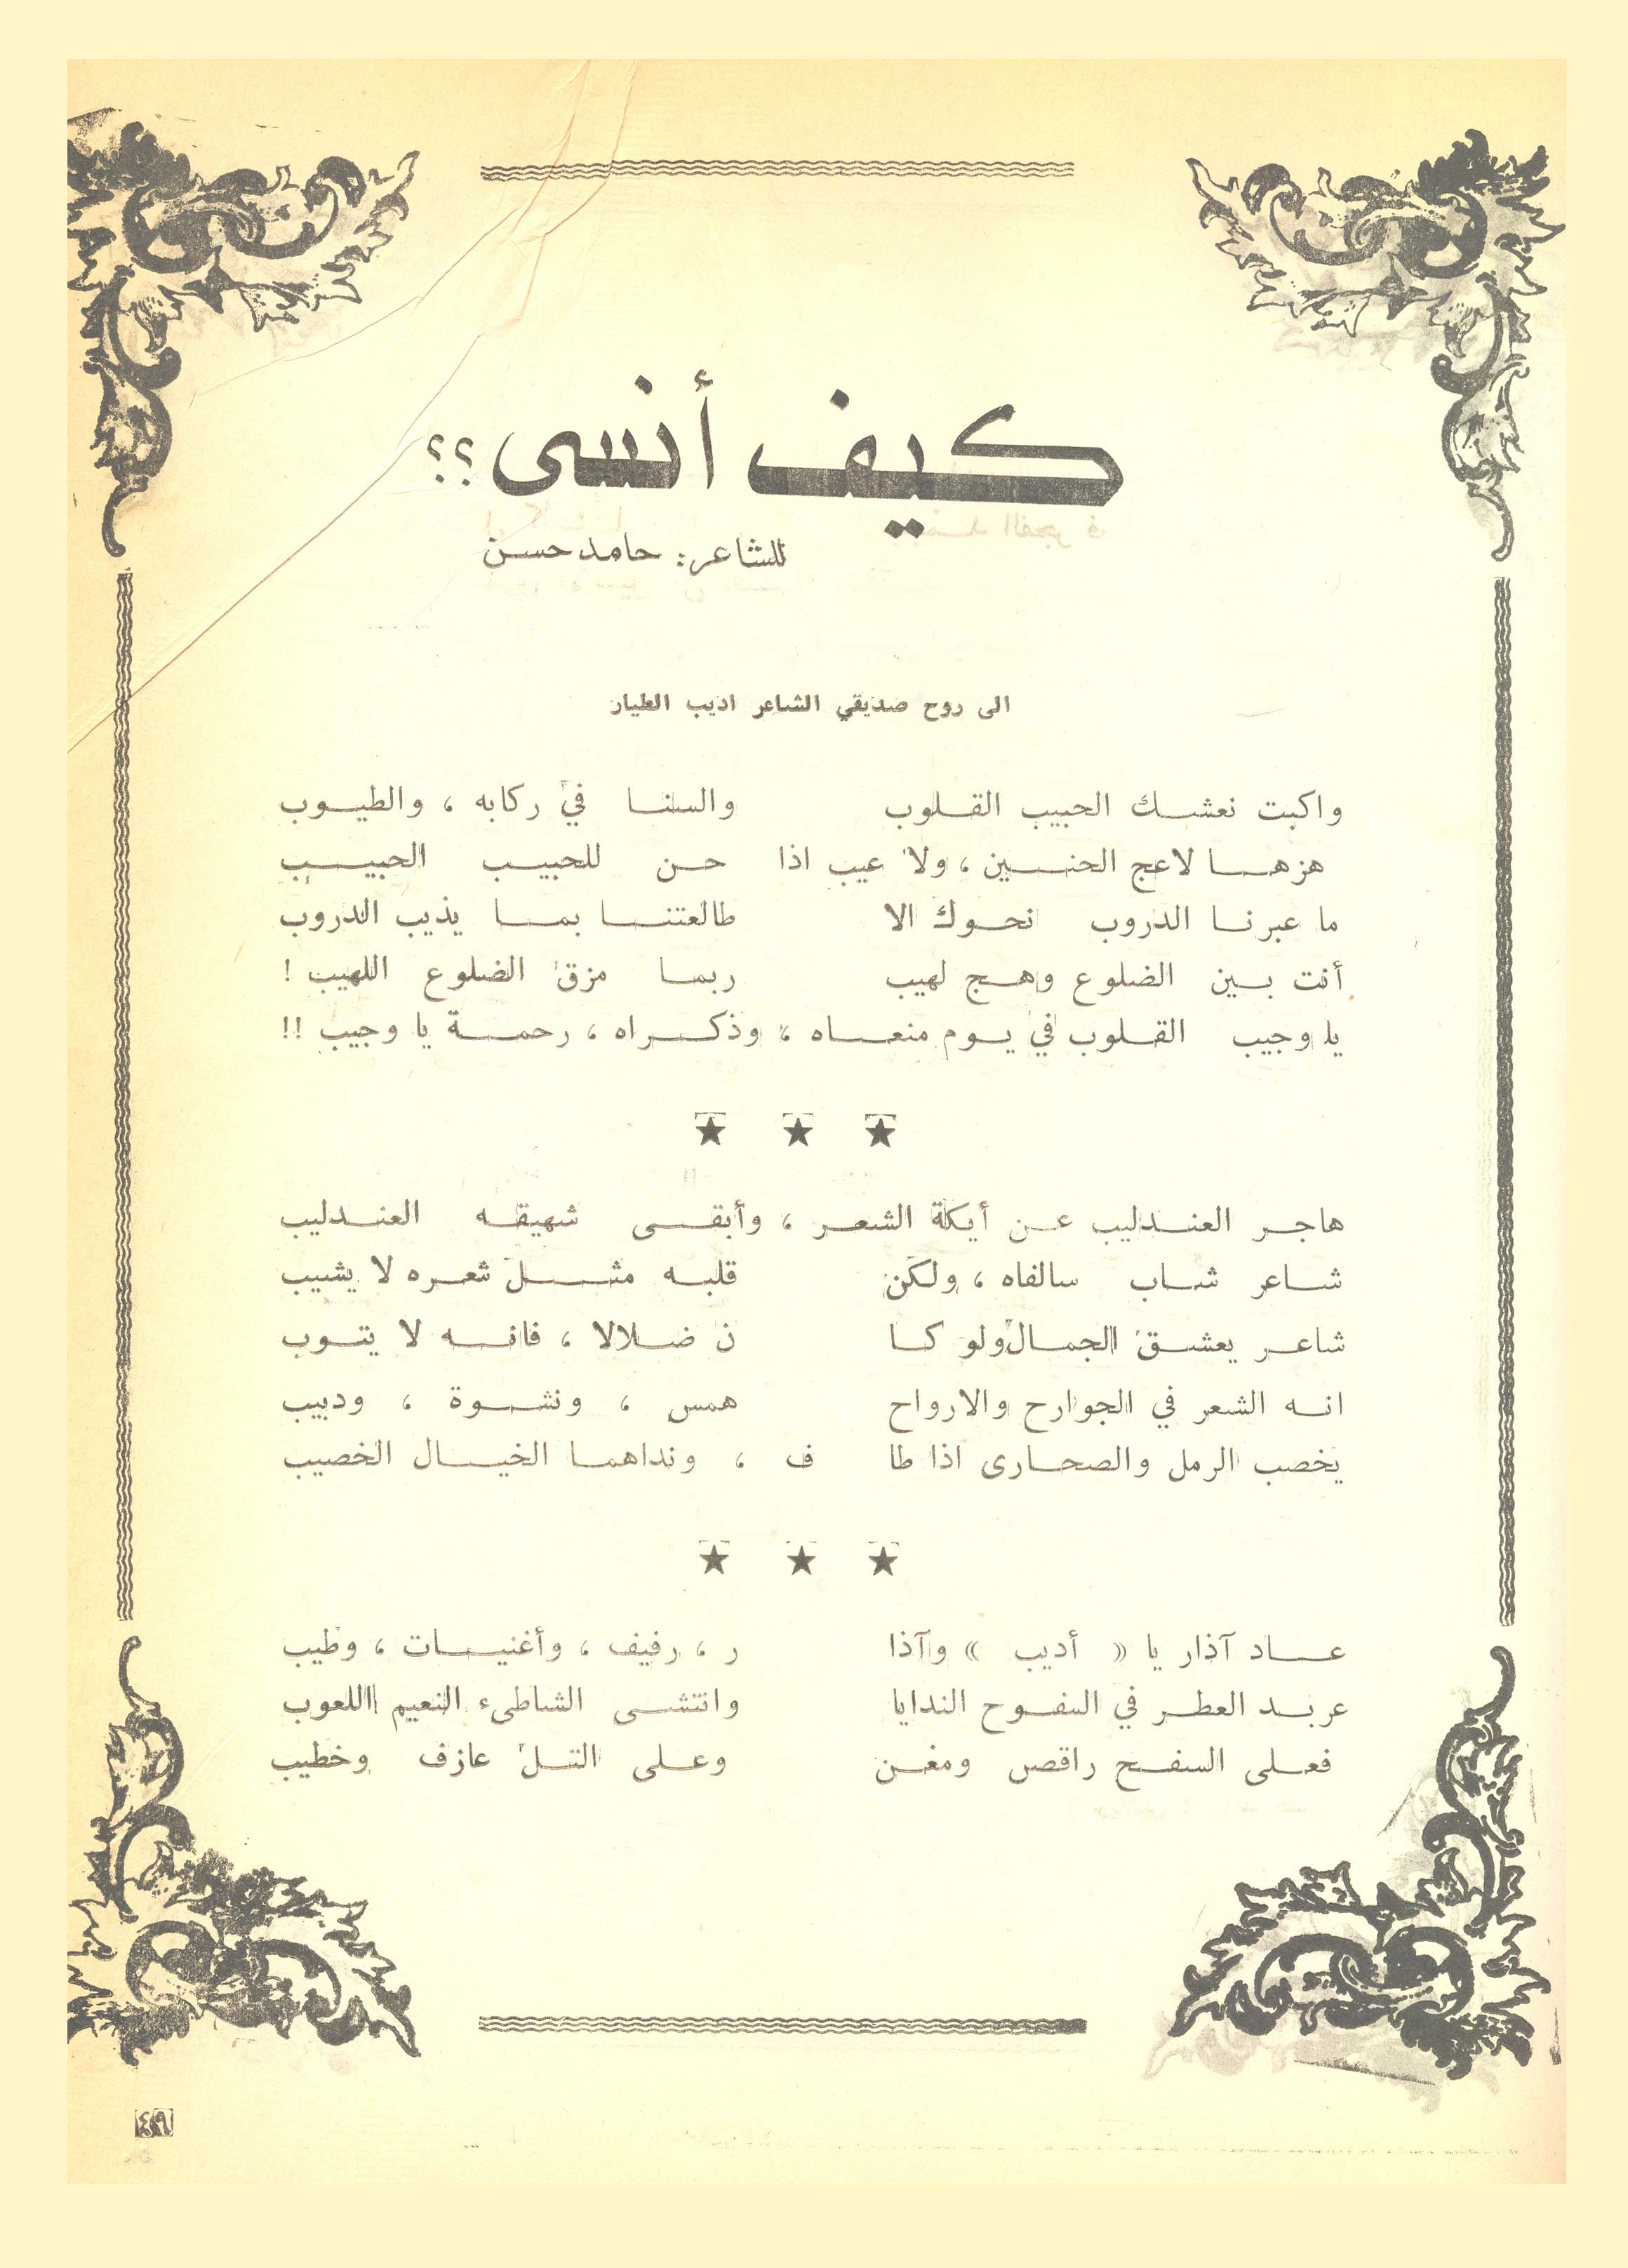 كيف أنسى ؟؟
للشاعر: حامد حسن
الى روح صديقي الشاعر اديب الطيار
واكبت نعشك الحبيب القلوب والسنا في ركابه ، والطيوب
هزها لاعج الحنين ، ولا عيب اذا حن للحبيب الحبيب
ما عبرنا الدروب نحوك الا طالعتنا بما يذيب الدروب
أنت بين الضلوع وهج لهيب ربما مزق الضلوع اللهيب !
يا وجيب القلوب في يوم منعاه ، وذكراه ، رحمة يا وجيب !!
هاجر العندليب عن أيكة الشعر ، وأبقى شهيقه العندليب
شاعر شاب سالفاه ، ولكن قلبه مثل شعره لا يشيب
شاعر يعشق الجمال ولو كا ن ضلالا ، فانه لا يتوب
انه الشعر في الجوارح والارواح همس ، ونشوة ، ودبيب
يخصب الرمل والصحارى اذا طا ف ، ونداهما الخيال الخصيب
عاد آذار يا « أديب » وآذا ر ، رفيف ، وأغنيات ، وطيب
عربد العطر في السفوح الندايا وانتشى الشاطىء النعيم اللعوب
فعلى السفح راقص ومغن وعلى التل عازف وخطيب
٤٩